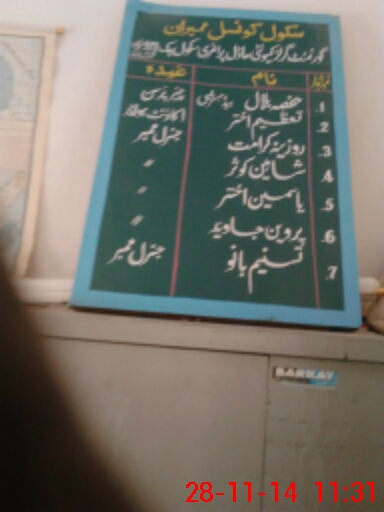 سکول کونسل ممبران
گورنمنٹ گرلز کمیونٹی ماڈل پرائمری سکول چک
نمبر شمار نام عہدہ
1. حفصہ بلال ہیڈ مسٹریس چیئر پرسن
2. تعظیم اختر اکاؤنٹ ہولڈر
3. روزینہ کرامت جنرل ممبر
4. شاہین کوثر 〃
5. یاسمین اختر 〃
6. پروین جاوید 〃
7. تسنیم بانو جنرل ممبر
BARKAT
28-11-14 11:31